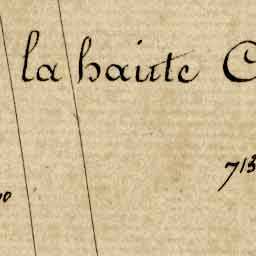 la haute C
713